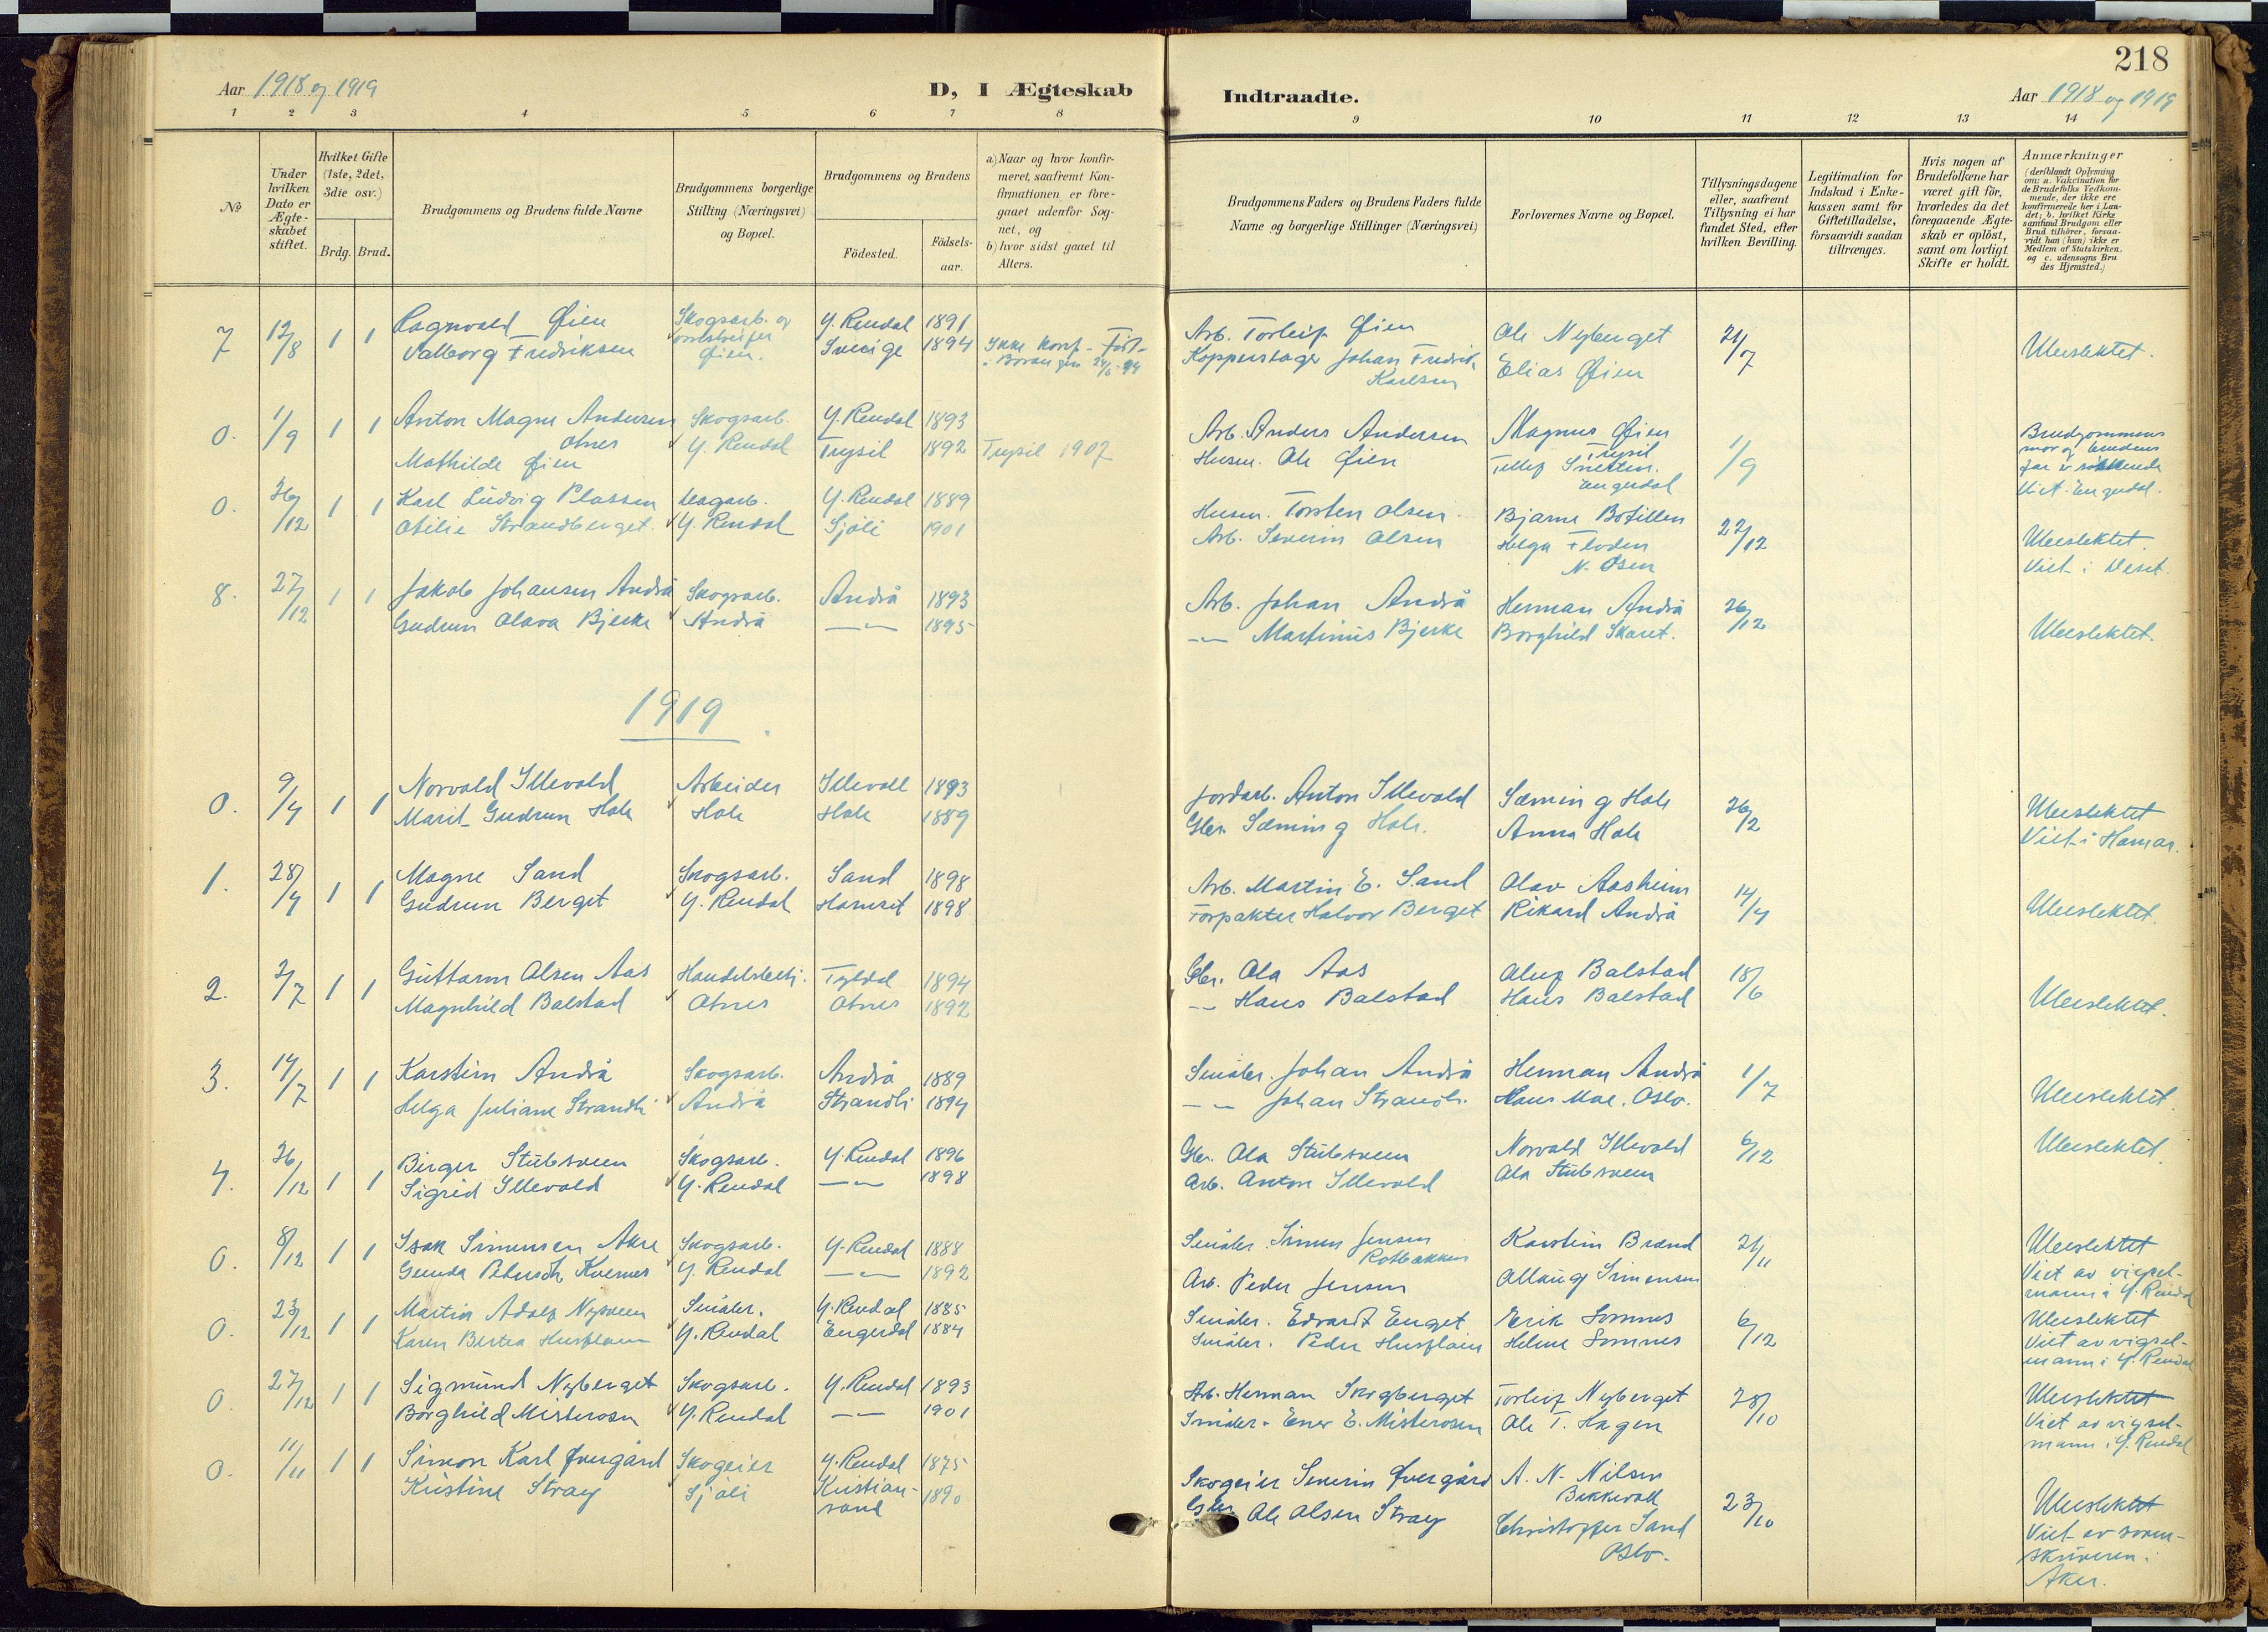 218
Aar 1918 og 1919
D, I Ægteskab
Indtraadte.
Aar 1918 og 1919
1 2 3 4 5 6 7 8 9 10 11 12 13 14
No
Under hvilken Dato er Ægteskabet stiftet.
Hvilket Gifte (1ste, 2det, 3die osv.)
Brdg. Brud.
Brudgommens og Brudens fulde Navne
Brudgommens borgerlige Stilling (Næringsvei) og Bopæl.
Brudgommens og Brudens
Födested.
Födselsaar.
a) Naar og hvor konfirmeret, saafremt Konfirmationen er foregaaet udenfor Sognet, og
b) hvor sidst gaaet til Alters.
Brudgommens Faders og Brudens Faders fulde Navne og borgerlige Stillinger (Næringsvei)
Forlovernes Navne og Bopæl.
Tillysningsdagene eller, saafremt Tillysning ei har fundet Sted, efter hvilken Bevilling.
Legitimation for Indskud i Enkekassen samt for Giftetilladelse, forsaavidt saadan tiltrænges.
Hvis nogen af Brudefolkene har været gift för, hvorledes da det foregaaende Ægteskab er oplöst, samt om lovligt Skifte er holdt.
Anmærkninger
(deriblandt Oplysning om: a. Vakcination for de Brudefolks Vedkommende, der ikke ere konfirmerede her i Landet; b. hvilket Kirkesamfund Brudgom eller Brud tilhörer, forsaavidt han (hun) ikke er Medlem af Statskirken, og c. udensogns Brudes Hjemsted.)
7 12/8 1 1 Ragnvald Øien Skogsarb. og Y. Rendal 1891 Arb. Torleif Øien Ole Nyberget 21/7 Ubeslektet.
Valborg Fredriksen Øien. Sverige 1894 Ikke konf. Kopperslager Johan Fredrik Karlsen Elias Øien
0. 1/9 1 1 Anton Magne Andersen Otnes Skogsarb. Y. Rendal 1893 Arb. Anders Andersen Magnus Øien Trysil 1/9 Brudgommens mor og brudens far er søskende Viet Engerdal.
Mathilde Øien Y. Rendal Trysil 1892 Trysil 1907 Husm. Ole Øien Engerdal
0. 26/12 1 1 Karl Ludvig Plassen Y. Rendal 1889 Husm. Torsten Olsen Bjarne Botillen 22/12 Ubeslektet.
Otilie Strandberget. Y. Rendal Sjöli 1901 Arb. Severin Olsen Helga Floden N. Osen Viet i Deset.
8. 27/12 1 1 Jakob Johansen Andrå Skogsarb. Andrå 1893 Arb. Johan Andrå Herman Andrå 26/12 Ubeslektet.
Gudrun Olava Bjerke Andrå —"— 1895 —"— Martinus Bjerke Borghild Skaret.
1919
0. 9/4 1 1 Norvald Illevold Arbeider Illevoll 1893 Jordarb. Anton Illevold Sæming Hole 26/2 Ubeslektet
Marit Gudrun Hole Hole Hole 1889 Gbr. Sæming Hole. Anna Hole Viet i Hamar.
1. 28/4 1 1 Magne Sand Skogsarb. Sand 1898 Arb. Martin E. Sand Olav Aasheim 14/4 Ubeslektet.
Gudrun Berget Y. Rendal Harnset 1898 Forpakter Halvor Berget Rikard Andrå
2. 2/7 1 1 Guttorm Olsen Aas Handelsbetj. Tyldal 1894 Gbr. Ola Aas Oluf Balstad 18/6 Ubeslektet.
Magnhild Balstad Otnes Otnes 1892 —"— Hans Balstad Hans Balstad
3. 14/7 1 1 Karstein Andrå Skogsarb. Andrå 1889 Småbr. Johan Andrå Herman Andrå 1/7 Ubeslektet.
Helga Juliane Strandli Andrå Strandli 1894 —"— Johan Strandli. Hans Moe. Oslo.
4. 26/12 1 1 Birger Stubsveen Skogsarb. Y. Rendal 1896 Gbr. Ola Stubsveen Norvald Illevold 6/12 Ubeslektet.
Sigrid Illevold Y. Rendal —"— 1898 Arb. Anton Illevold Ola Stubsveen
0. 8/12 1 1 Isak Simensen Akre Skogsarb. Y. Rendal 1888 Småbr. Simen Jensen Rotbakken Karstein Brænd 21/11 Ubeslektet
Gunda Petersdt. Kvernes Y. Rendal —"— 1892 Arb. Peder Jensen Ollaug Simensen Viet av vigselmann i Y. Rendal
0. 23/12 1 1 Martin Adolf Nysveen Småbr. Y. Rendal 1885 Småbr. Edvardt Enget Erik Lomnes 6/12 Ubeslektet
Karen Bertea Husfloen Y. Rendal Engerdal 1884 Småbr. Peder Husfloen Helene Lomnes Viet av vigselmann i Y. Rendal
0. 27/12 1 1 Sigmund Nyberget Skogsarb. Y. Rendal 1893 Arb. Herman Skogberget Torleif Nyberget 28/10 Ubeslektet
Borghild Misterosen Y. Rendal —"— 1901 Småbr. Ener E. Misterosen Ole T. Hagen Viet av vigselmann i Y. Rendal
0. 11/11 1 1 Simon Karl Øvergård Skogeier Y. Rendal 1875 Skogeier Severin Øvergård A. N. Nilsen Bekkevold 23/10 Ubeslektet
Kristine Stray Sjöli Kristiansand 1890 Gbr. Ole Olsen Stray Christoffer Sand Oslo. Viet av sorenskriveren i Aker.